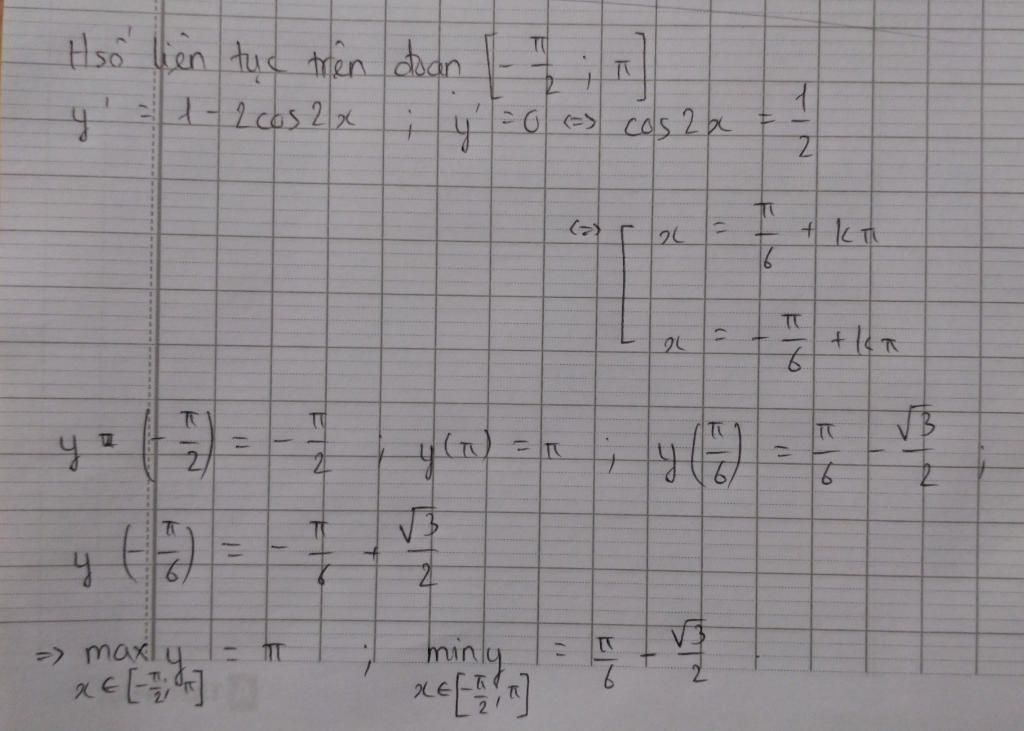 Hsố liên tục trên đoạn [-π/2 ; π]
y' = 1 - 2cos2x ; y' = 0 <=> cos2x = 1/2
<=> [ x = π/6 + kπ
x = -π/6 + kπ
y = (-π/2) = -π/2 ; y(π) = π ; y(π/6) = π/6 - √3/2 ;
y(-π/6) = -π/6 + √3/2
=> max y = π ; min y = π/6 - √3/2
x∈[-π/2; π] x∈[-π/2, π]